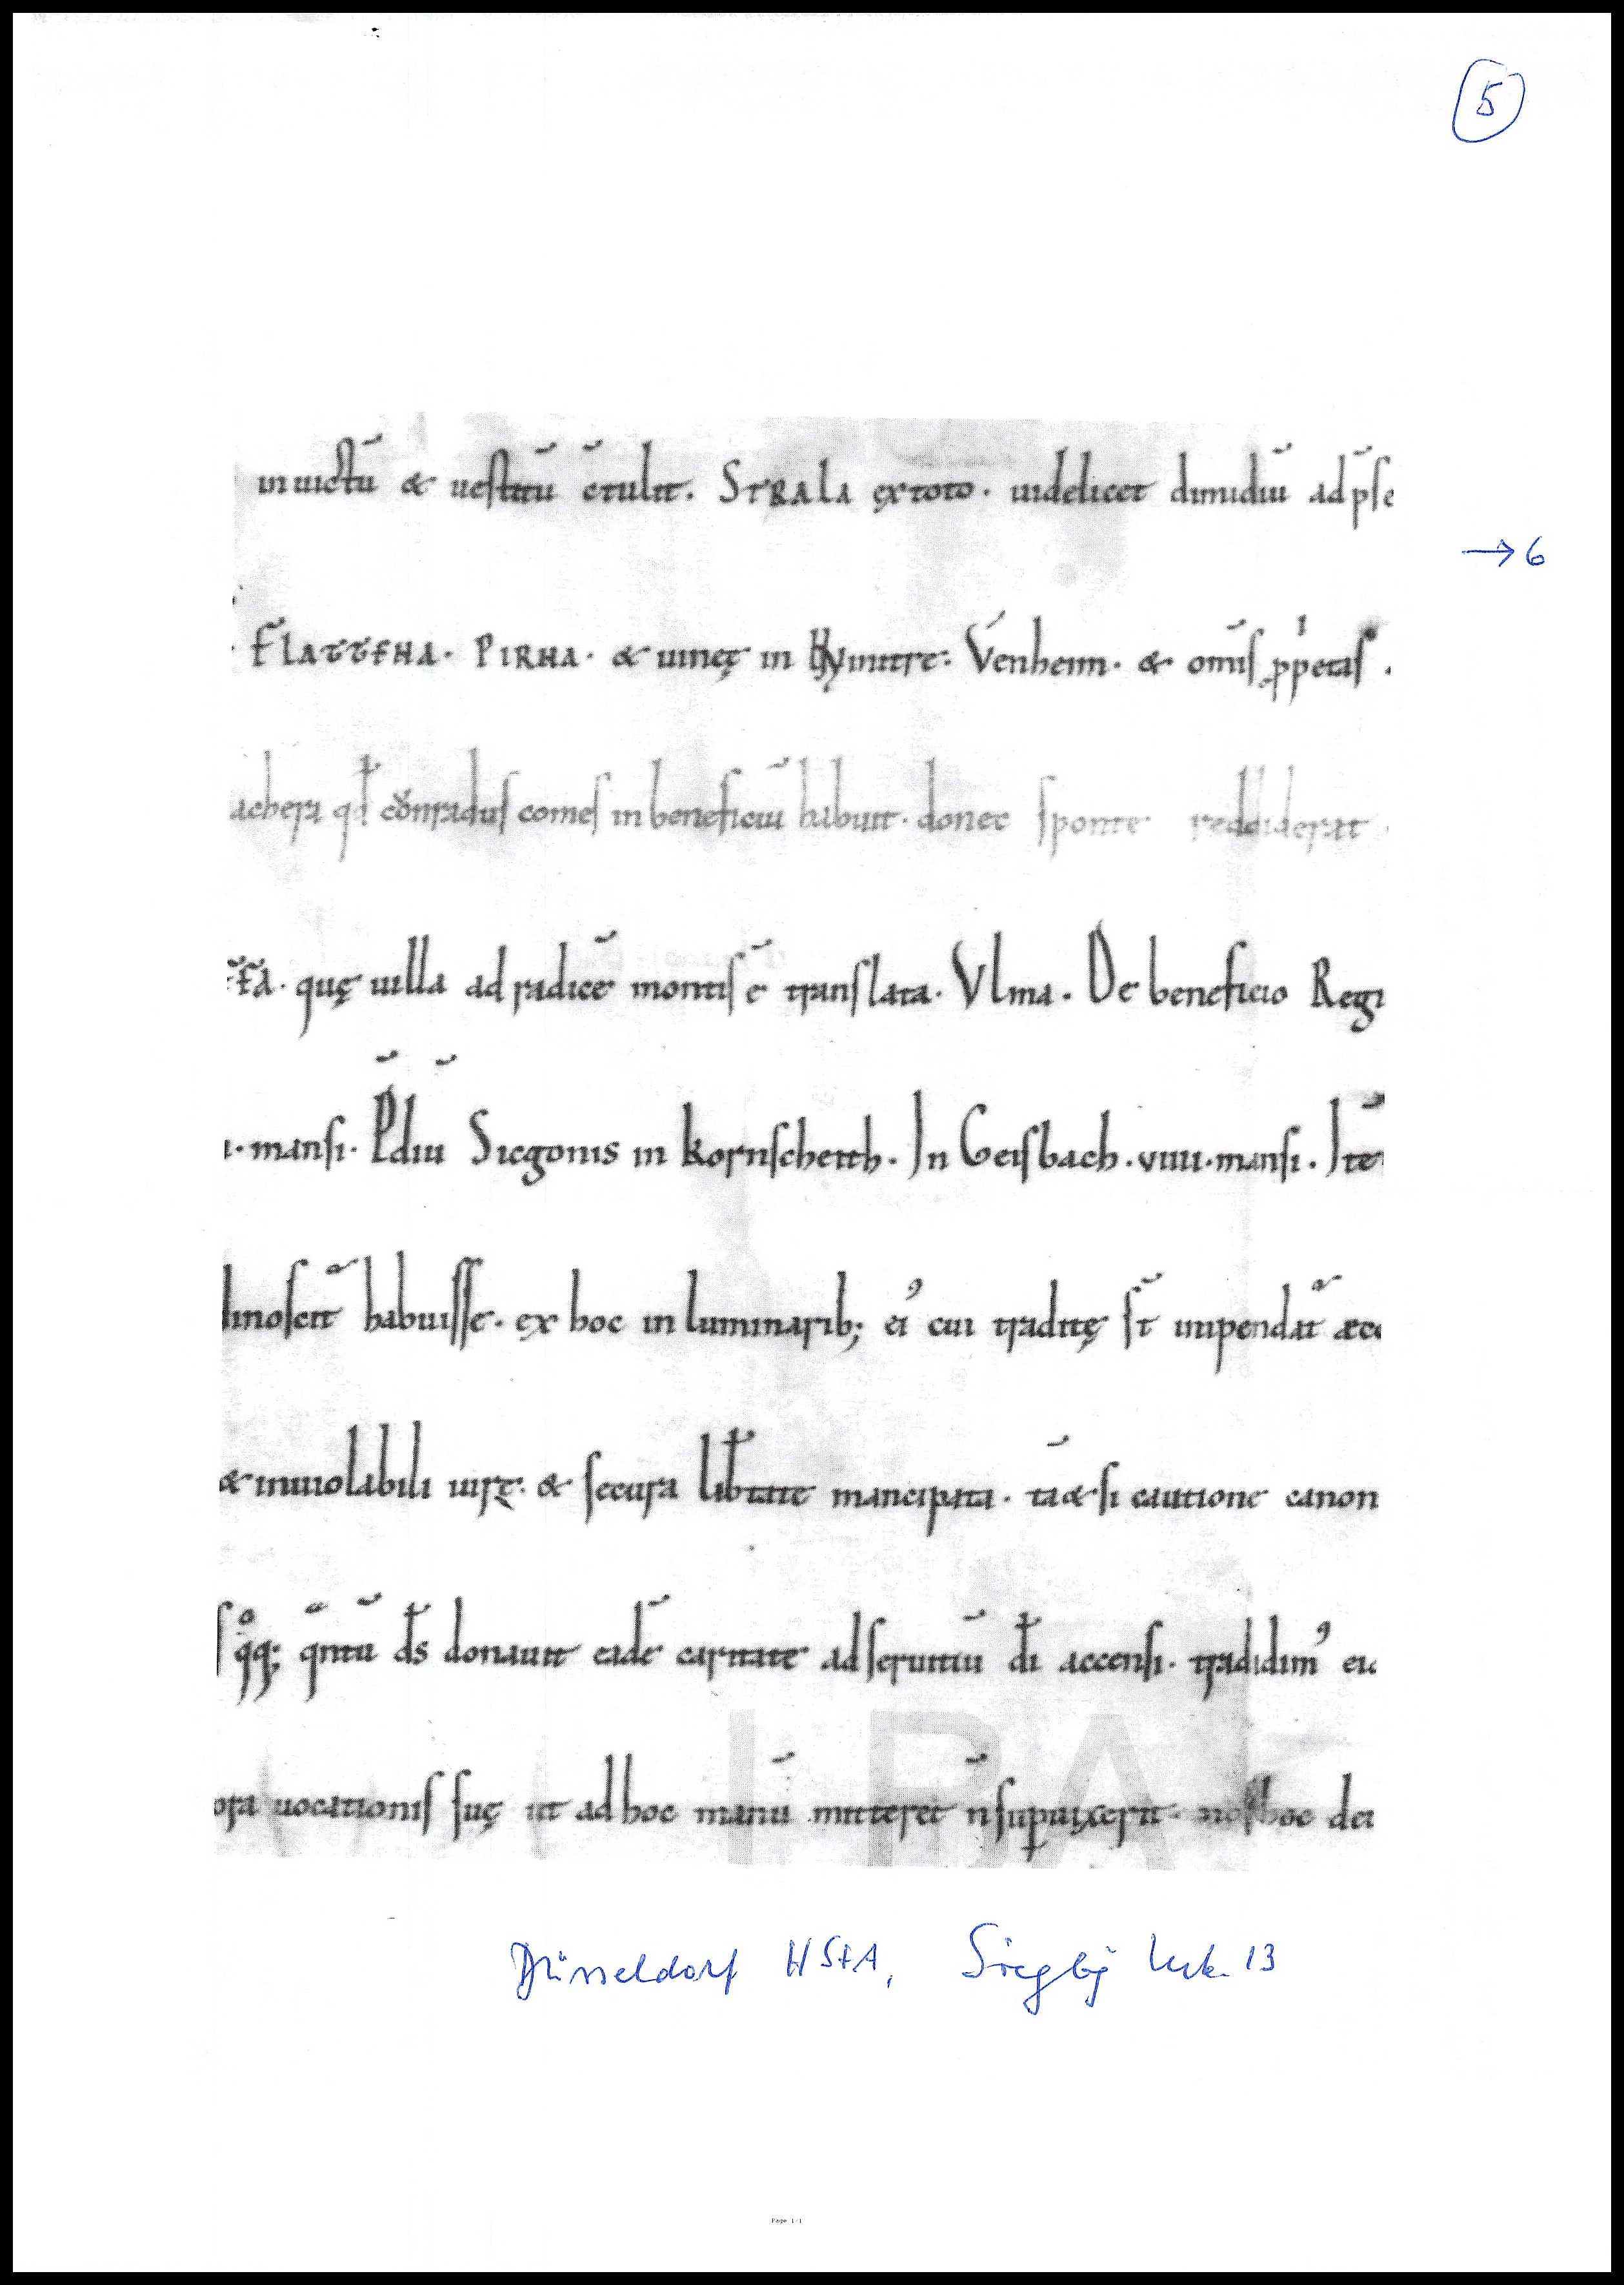 5
in uictū & ueſtitū ētulit. STRALA ęxtoto. uidelicet dimidiū ad p̄ſe
→ 6
FLATTENA. PIRNA. & uineę in Venheim. & om̄iſ
achera qđ cōnraduſ comeſ in beneficiū habuit. donec ſponte reddiderat
quę uilla ad radicē montiſ ē tranſlata. Vlma. De beneficio Regi
manſi. P̄diū Siegonis in kornſcheith. In Geiſbach. viiii. manſi. Itē
dinoſcit̄ habuiſſe. ex hoc in luminarib; ei᾽ cui traditę ſt̄ inpendat̄ ęcc
& inuiolabili iurę. & ſecura lib̄tate mancipata. tā & ſi cautione canon
ſ qͦq; q̄ntū ds̄ donauit eadē caritate ad ſeruitiū dī accenſi. tradidim᾽ eic
ora uocationiſ ſuę ut ad hoc manū mitteret n̄ ſup̱uixerit. noſ hoc dei
IPA
Düsseldorf HStA, Siegbg Urk. 13
Page 1/1